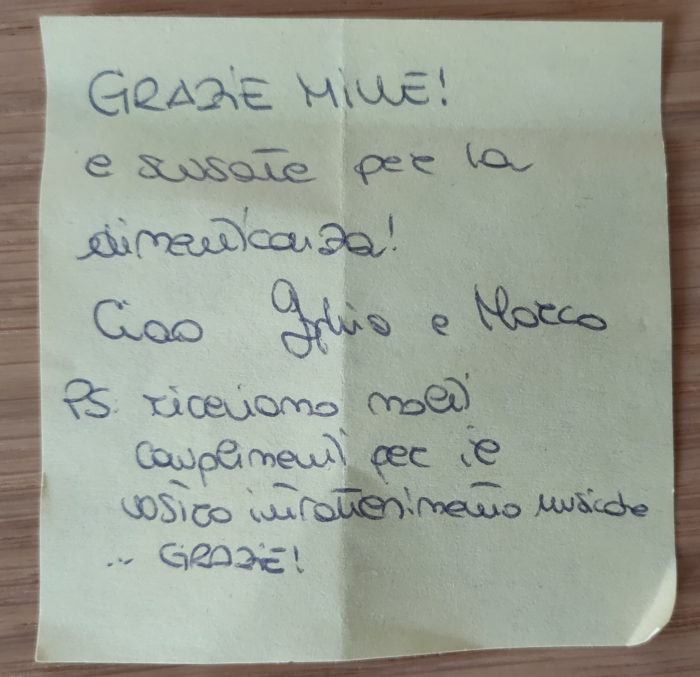 GRAZIE MILLE!
e scusate per la
dimenticanza!
Ciao e Marco
PS. riceviamo molti
complimenti per il
vostro intrattenimento musicale
.. GRAZIE!